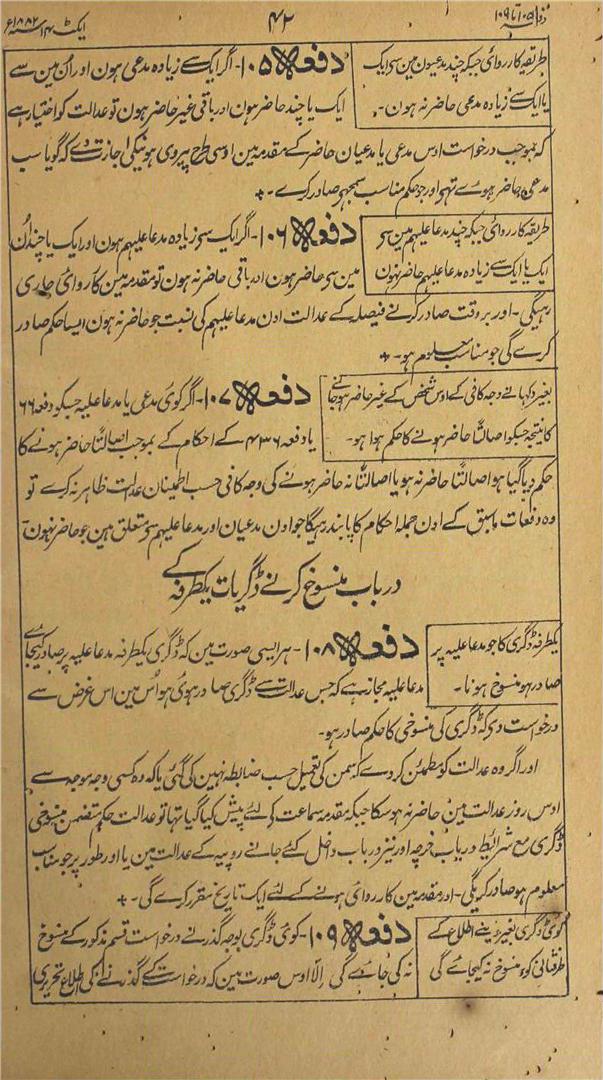 دفعہ ۱۰۵ تا ۱۰۹
۴۲
ایکٹ ۱۴ سنہ ۱۸۸۲ع
طریقہ کارروائی جبکہ چند مدعیون مین سی ایک
یا ایک سے زیادہ مدعی حاضر نہ ہون۔
دفعہ ۱۰۵۔ اگر ایک سے زیادہ مدعی ہون اور اُن مین سے
ایک یا چند حاضر ہون اور باقی غیر حاضر ہون تو عدالت کو اختیار ہے
کہ بموجب درخواست اوس مدعی یا مدعیان حاضر کے مقدمہ مین اوسی طرح پیروی ہونیکی اجازت دے کہ گویا سب
مدعی حاضر ہوے تہی اور جو حکم مناسب سمجہو صادر کرے۔
طریقہ کارروائی جبکہ چند مدعا علیہم مین سی
ایک یا ایک سے زیادہ مدعا علیہم حاضر نہون
دفعہ ۱۰۶۔ اگر ایک سی زیادہ مدعا علیہم ہون اور ایک یا چند اُن
مین سی حاضر ہون اور باقی حاضر نہ ہون تو مقدمہ مین کارروائی جاری
رہیگی۔ اور بروقت صادر کرنے فیصلہ کے عدالت اون مدعا علیہم کی نسبت جو حاضر نہ ہون ایسا حکم صادر
کرے گی جو مناسب معلوم ہو۔
بغیر دکہانے وجہ کافی کے اوس شخص کے غیر حاضر ہو جانے
کا نتیجہ جسکو اصالتاً حاضر ہونے کا حکم ہوا ہو۔
دفعہ ۱۰۷۔ اگر کوئی مدعی یا مدعا علیہ جسکو دفعہ ۶۶
یا دفعہ ۴۳۶ کے احکام کے بموجب اصالتاً حاضر ہونے کا
حکم دیا گیا ہو اصالتاً حاضر نہ ہو یا اصالتاً نہ حاضر ہونے کی وجہ کافی حسب اطمینان عدالت ظاہر نہ کرے تو
وہ دفعات ماسبق کے اون جملہ احکام کا پابند رہیگا جو اون مدعیان اور مدعا علیہم سی متعلق ہین جو حاضر نہون
در باب منسوخ کرنے ڈگریات یکطرفہ کے
یکطرفہ ڈگری کا جو مدعا علیہ پر
صادر ہو منسوخ ہونا۔
دفعہ ۱۰۸۔ ہر ایسی صورت مین کہ ڈگری یکطرفہ مدعا علیہ پر صادر کیجاے
مدعا علیہ مجاز ہے کہ جس عدالت سے ڈگری صادر ہوئی ہو اُس مین اس غرض سے
درخواست دی کہ ڈگری کی منسوخی کا حکم صادر ہو۔
اور اگر وہ عدالت کو مطمئن کر دے کہ سمن کی تعمیل حسب ضابطہ نہین کی گئی یا کہ وہ کسی وجہ موجہ سے
اوس روز عدالت مین حاضر نہ ہو سکا جبکہ مقدمہ سماعت کے لئے پیش کیا گیا تہا تو عدالت حکم متضمن منسوخی
ڈگری مع شرائط در باب خرچہ اور نیز در باب داخل کئے جانے روپیہ کے عدالت مین یا اور طور پر جو مناسب
معلوم ہو صادر کریگی۔ اور مقدمہ مین کارروائی ہونے کے لئے ایک تاریخ مقرر کرے گی۔
کوئی ڈگری بغیر دینے اطلاع کے
طرف ثانی کو منسوخ نہ کیجائے گی
دفعہ ۱۰۹۔ کوئی ڈگری بوجہ گذرنے درخواست قسم مذکور کے منسوخ
نہ کی جائے گی اِلّا اوس صورت مین کہ درخواست کے گذرنے کی اطلاع تحریری